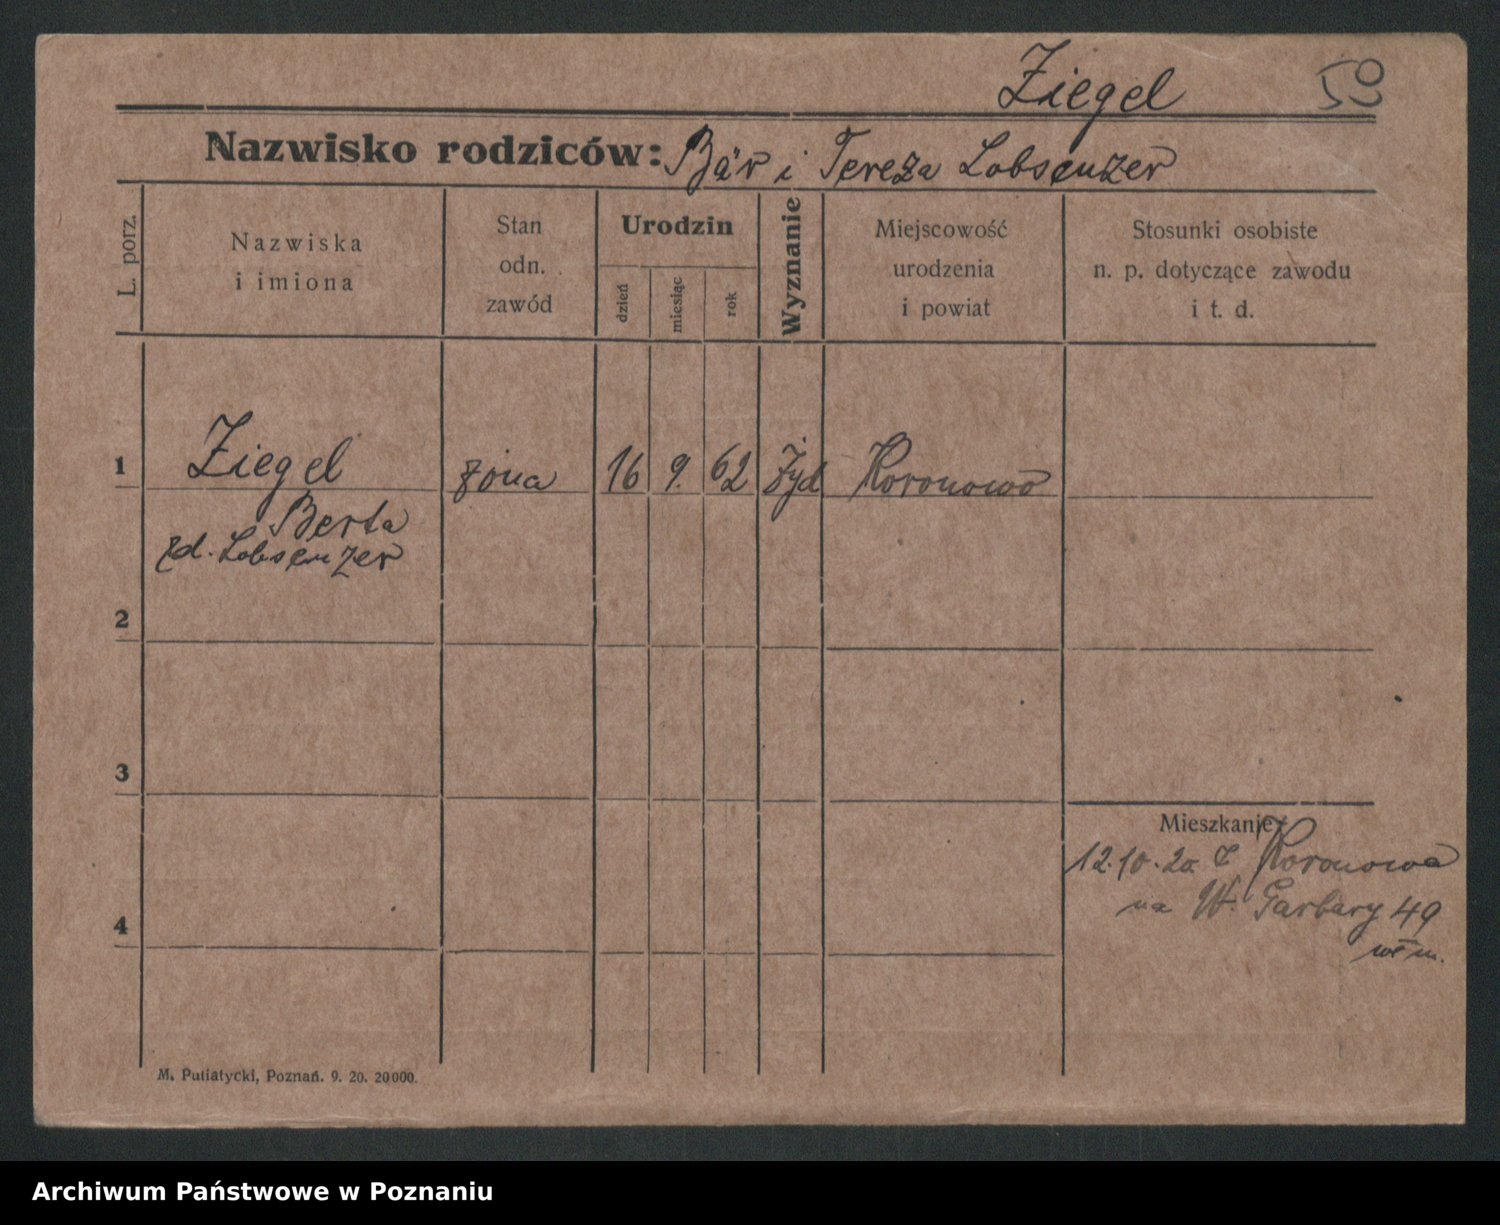 Ziegel 59
Nazwisko rodziców: Bär i Tereza Lobsenzer
L. porz.
Nazwiska
i imiona
Stan
odn.
zawód
Urodzin
dzień
miesiąc
rok
Wyznanie
Miejscowość
urodzenia
i powiat
Stosunki osobiste
n. p. dotyczące zawodu
i t. d.
1 Ziegel żona 16 9. 62 Żyd Koronowo
Berta
zd. Lobsenzer
2
3
Mieszkanie:
12.10.20 z Koronowa
na W. Garbary 49
4
M. Putiatycki, Poznań. 9. 20. 20000.
Archiwum Państwowe w Poznaniu